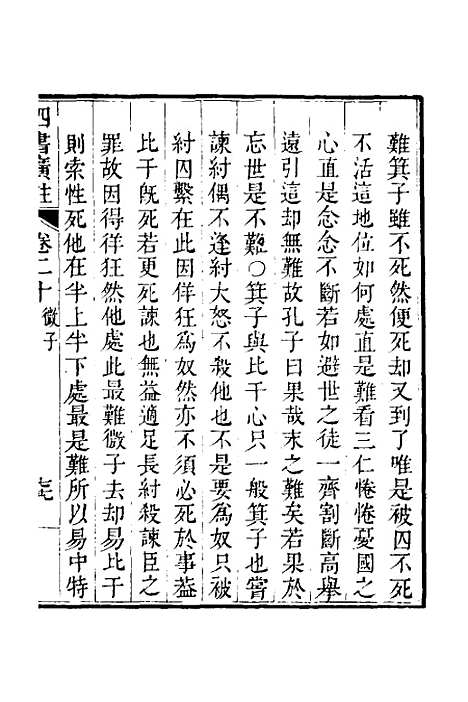 難箕子雖不死然便死却又到了唯是被囚不死
不活這地位如何處直是難看三仁惓惓憂國之
心直是念念不斷若如避世之徒一齊割斷高舉
遠引這却無難故孔子曰果哉末之難矣若果於
忘世是不難〇箕子與比干心只一般箕子也嘗
諫紂偶不逢紂大怒不殺他也不是要為奴只被
紂囚繫在此因佯狂為奴然亦不須必死於事葢
比干旣死若更死諫也無益適足長紂殺諫臣之
罪故因得佯狂然他處此最難微子去却易比干
則索性死他在半上半下處最是難所以易中特
四書廣註 卷二十 微子